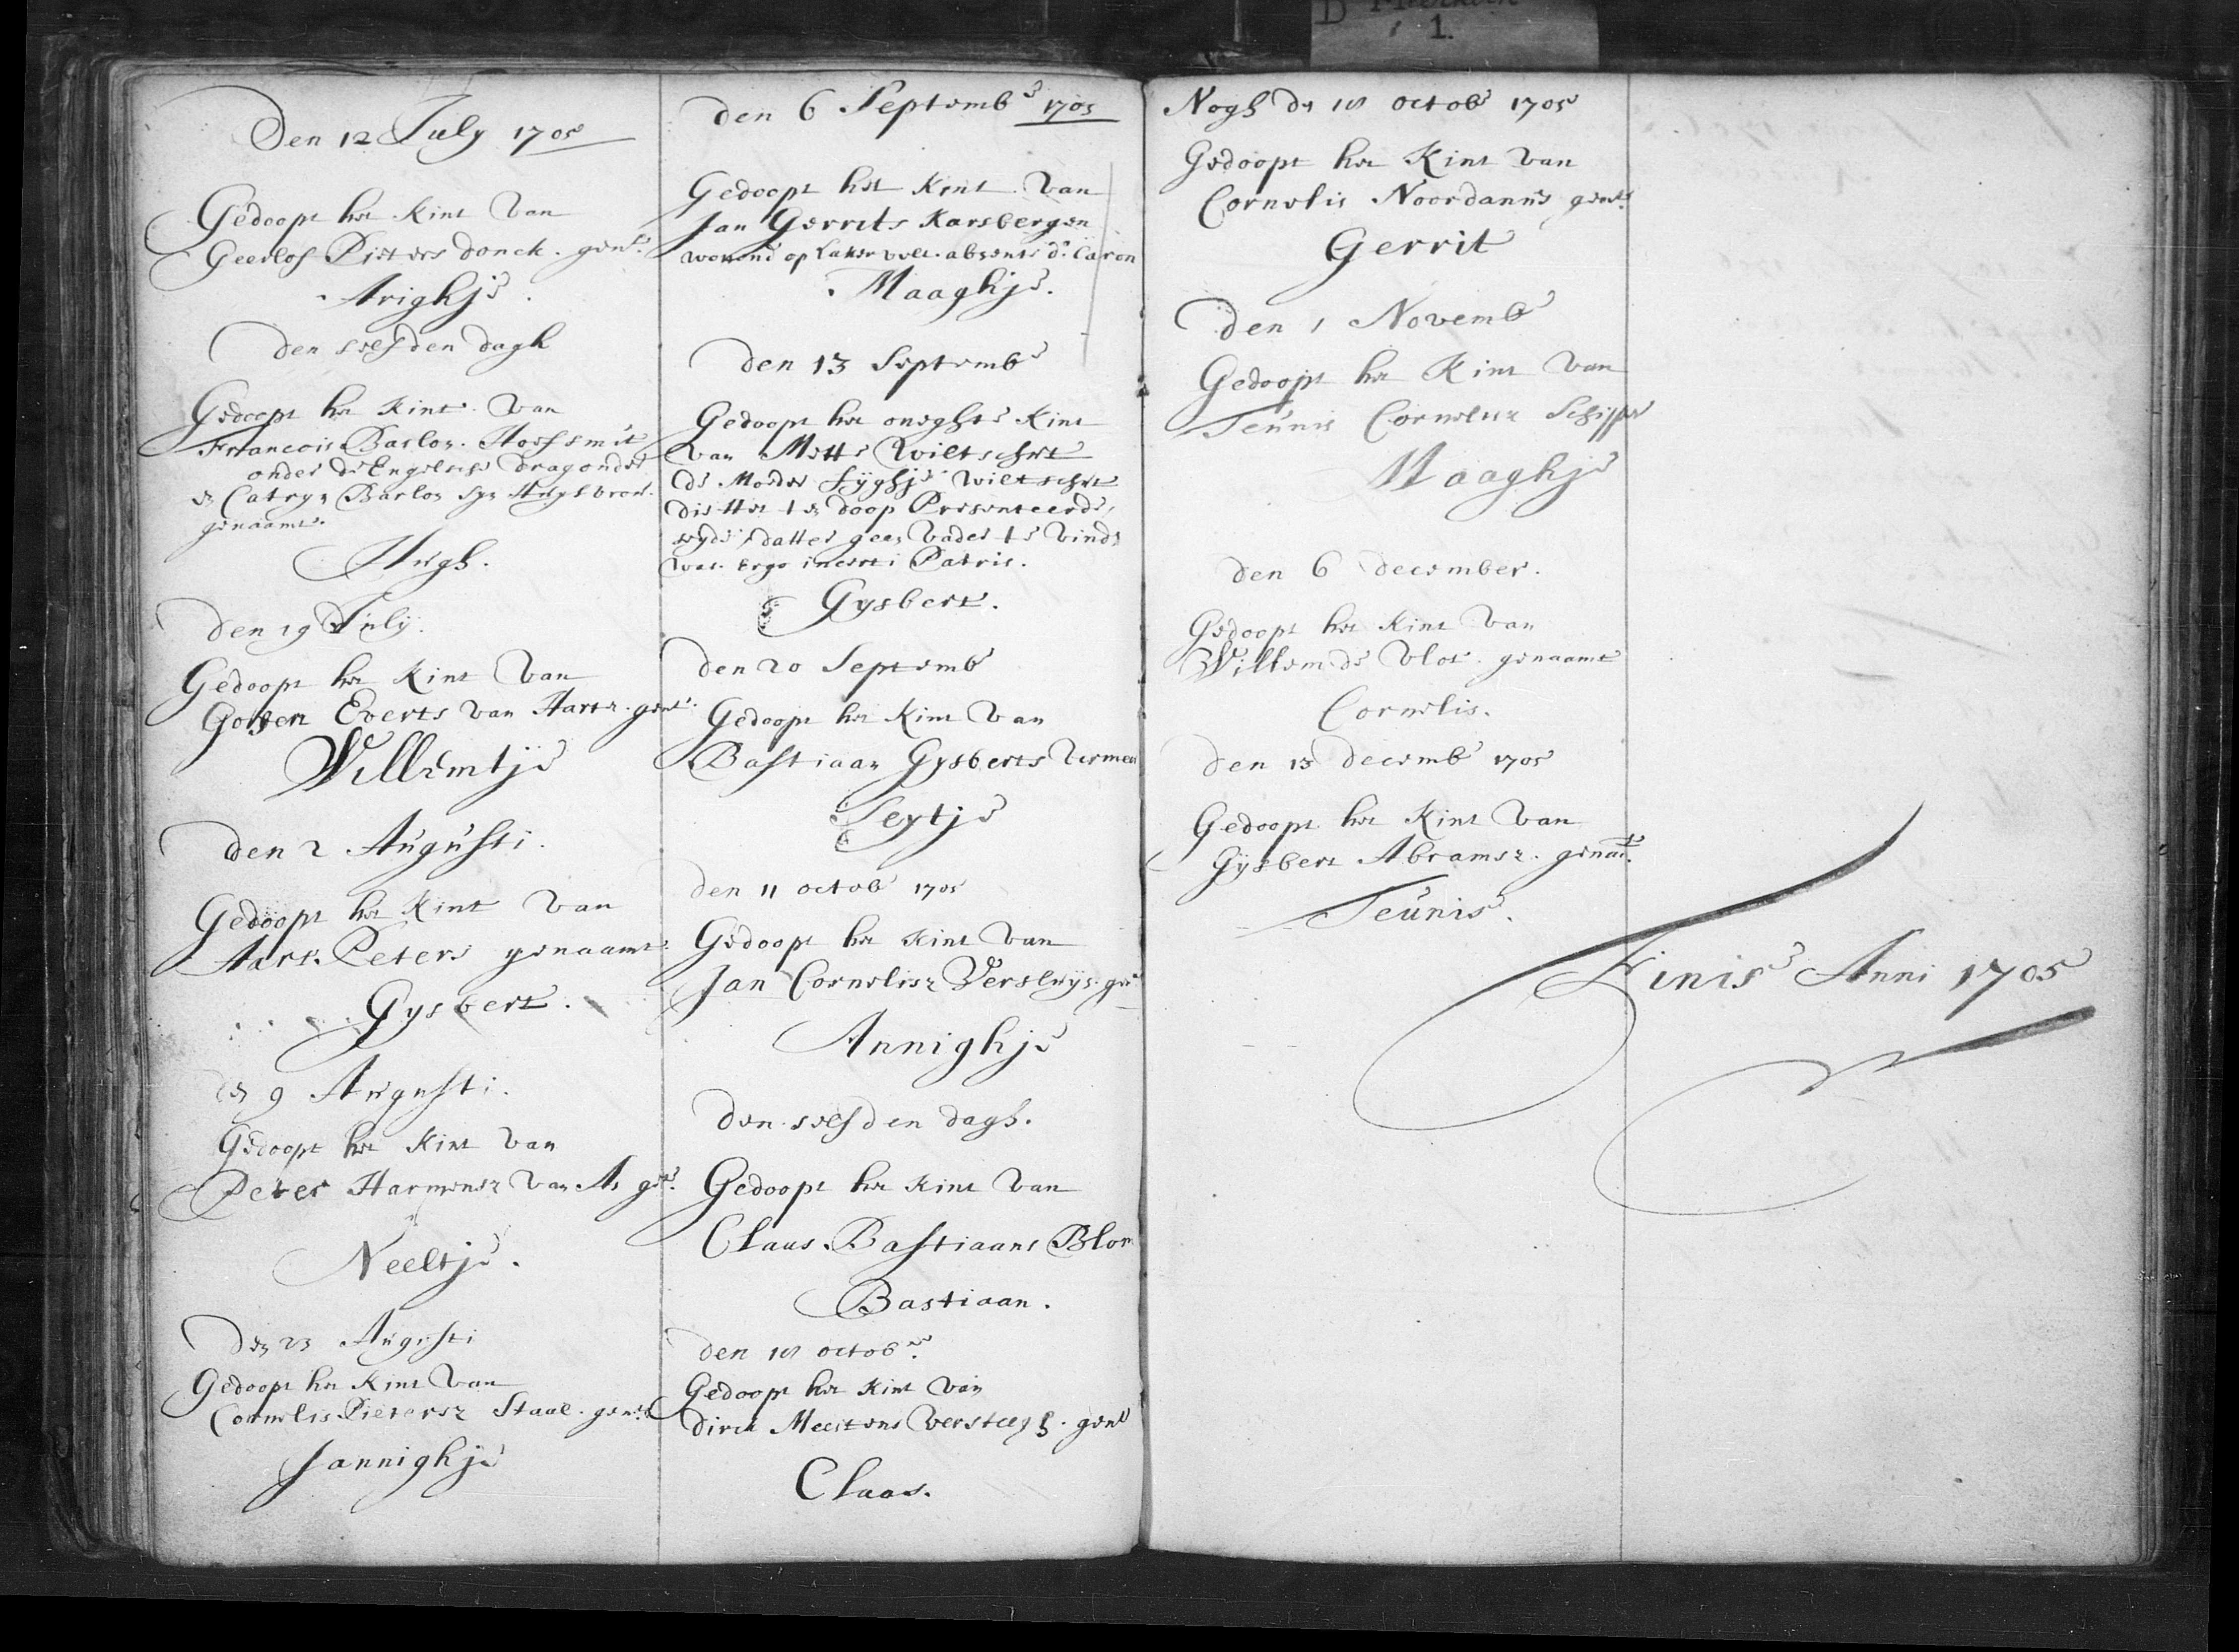 D Meerkerk
1.
Den 12 July 1705
Gedoopt het Kint Van
Geerlof Pieters donck. gent.
Arighje.
Den selfden dagh
Gedoopt het Kint Van
Francois Barlon. Hoefsmit
onder de Engelsche Dragonders
en Catryn Barlon syn Huysvrou.
genaamt.
Hugh.
Den 19 July.
Gedoopt het Kint Van
Gossen Everts Van Harte. gent.
Willemtje
Den 2 Augusti.
Gedoopt het Kint Van
Aart Peters genaamt
Gysbert.
den 9 Augusti.
Gedoopt het Kint Van
Peter Harmensz Van As gent.
Neeltje.
Den 23 Augusti
Gedoopt het Kint Van
Cornelis Pietersz Staal. gent.
Jannighje
Den 6 Septemb 1705
Gedoopt het Kint Van
Jan Gerrits Karsbergen
wonend op absente ds. Caron
Maaghje.
Den 13 Septemb
Gedoopt het oneghte Kint
Van Mette Wiltschut
de Moeder Fyghje Wiltschut
die Het ten doop Presenteerde,
seyde, datter geen Vader te Vinden
was. Ergo incerti Patris.
Gysbert.
Den 20 Septemb
Gedoopt het Kint Van
Bastiaan Gysberts Vermeu
Seytje
Den 11 octob 1705
Gedoopt het Kint Van
Jan Cornelisz Versluys. gen
Annighje
Den selfden dagh.
Gedoopt het Kint Van
Claas Bastiaans Blom
Bastiaan.
Den 18 octob.
Gedoopt het Kint Van
Dirck Meertens Versteegh. gent
Claas.
Nogh den 18 octob 1705
Gedoopt het Kint Van
Cornelis Noordanus gent.
Gerrit
Den 1 Novemb
Gedoopt het Kint Van
Teunis Cornelisz Schipper
Maaghje
Den 6 december.
Gedoopt het Kint Van
Willem de Vlot. genaamt
Cornelis.
Den 13 decemb 1705
Gedoopt het Kint Van
Gysbert Abramsz. genaamt.
Teunis.
Finis Anni 1705